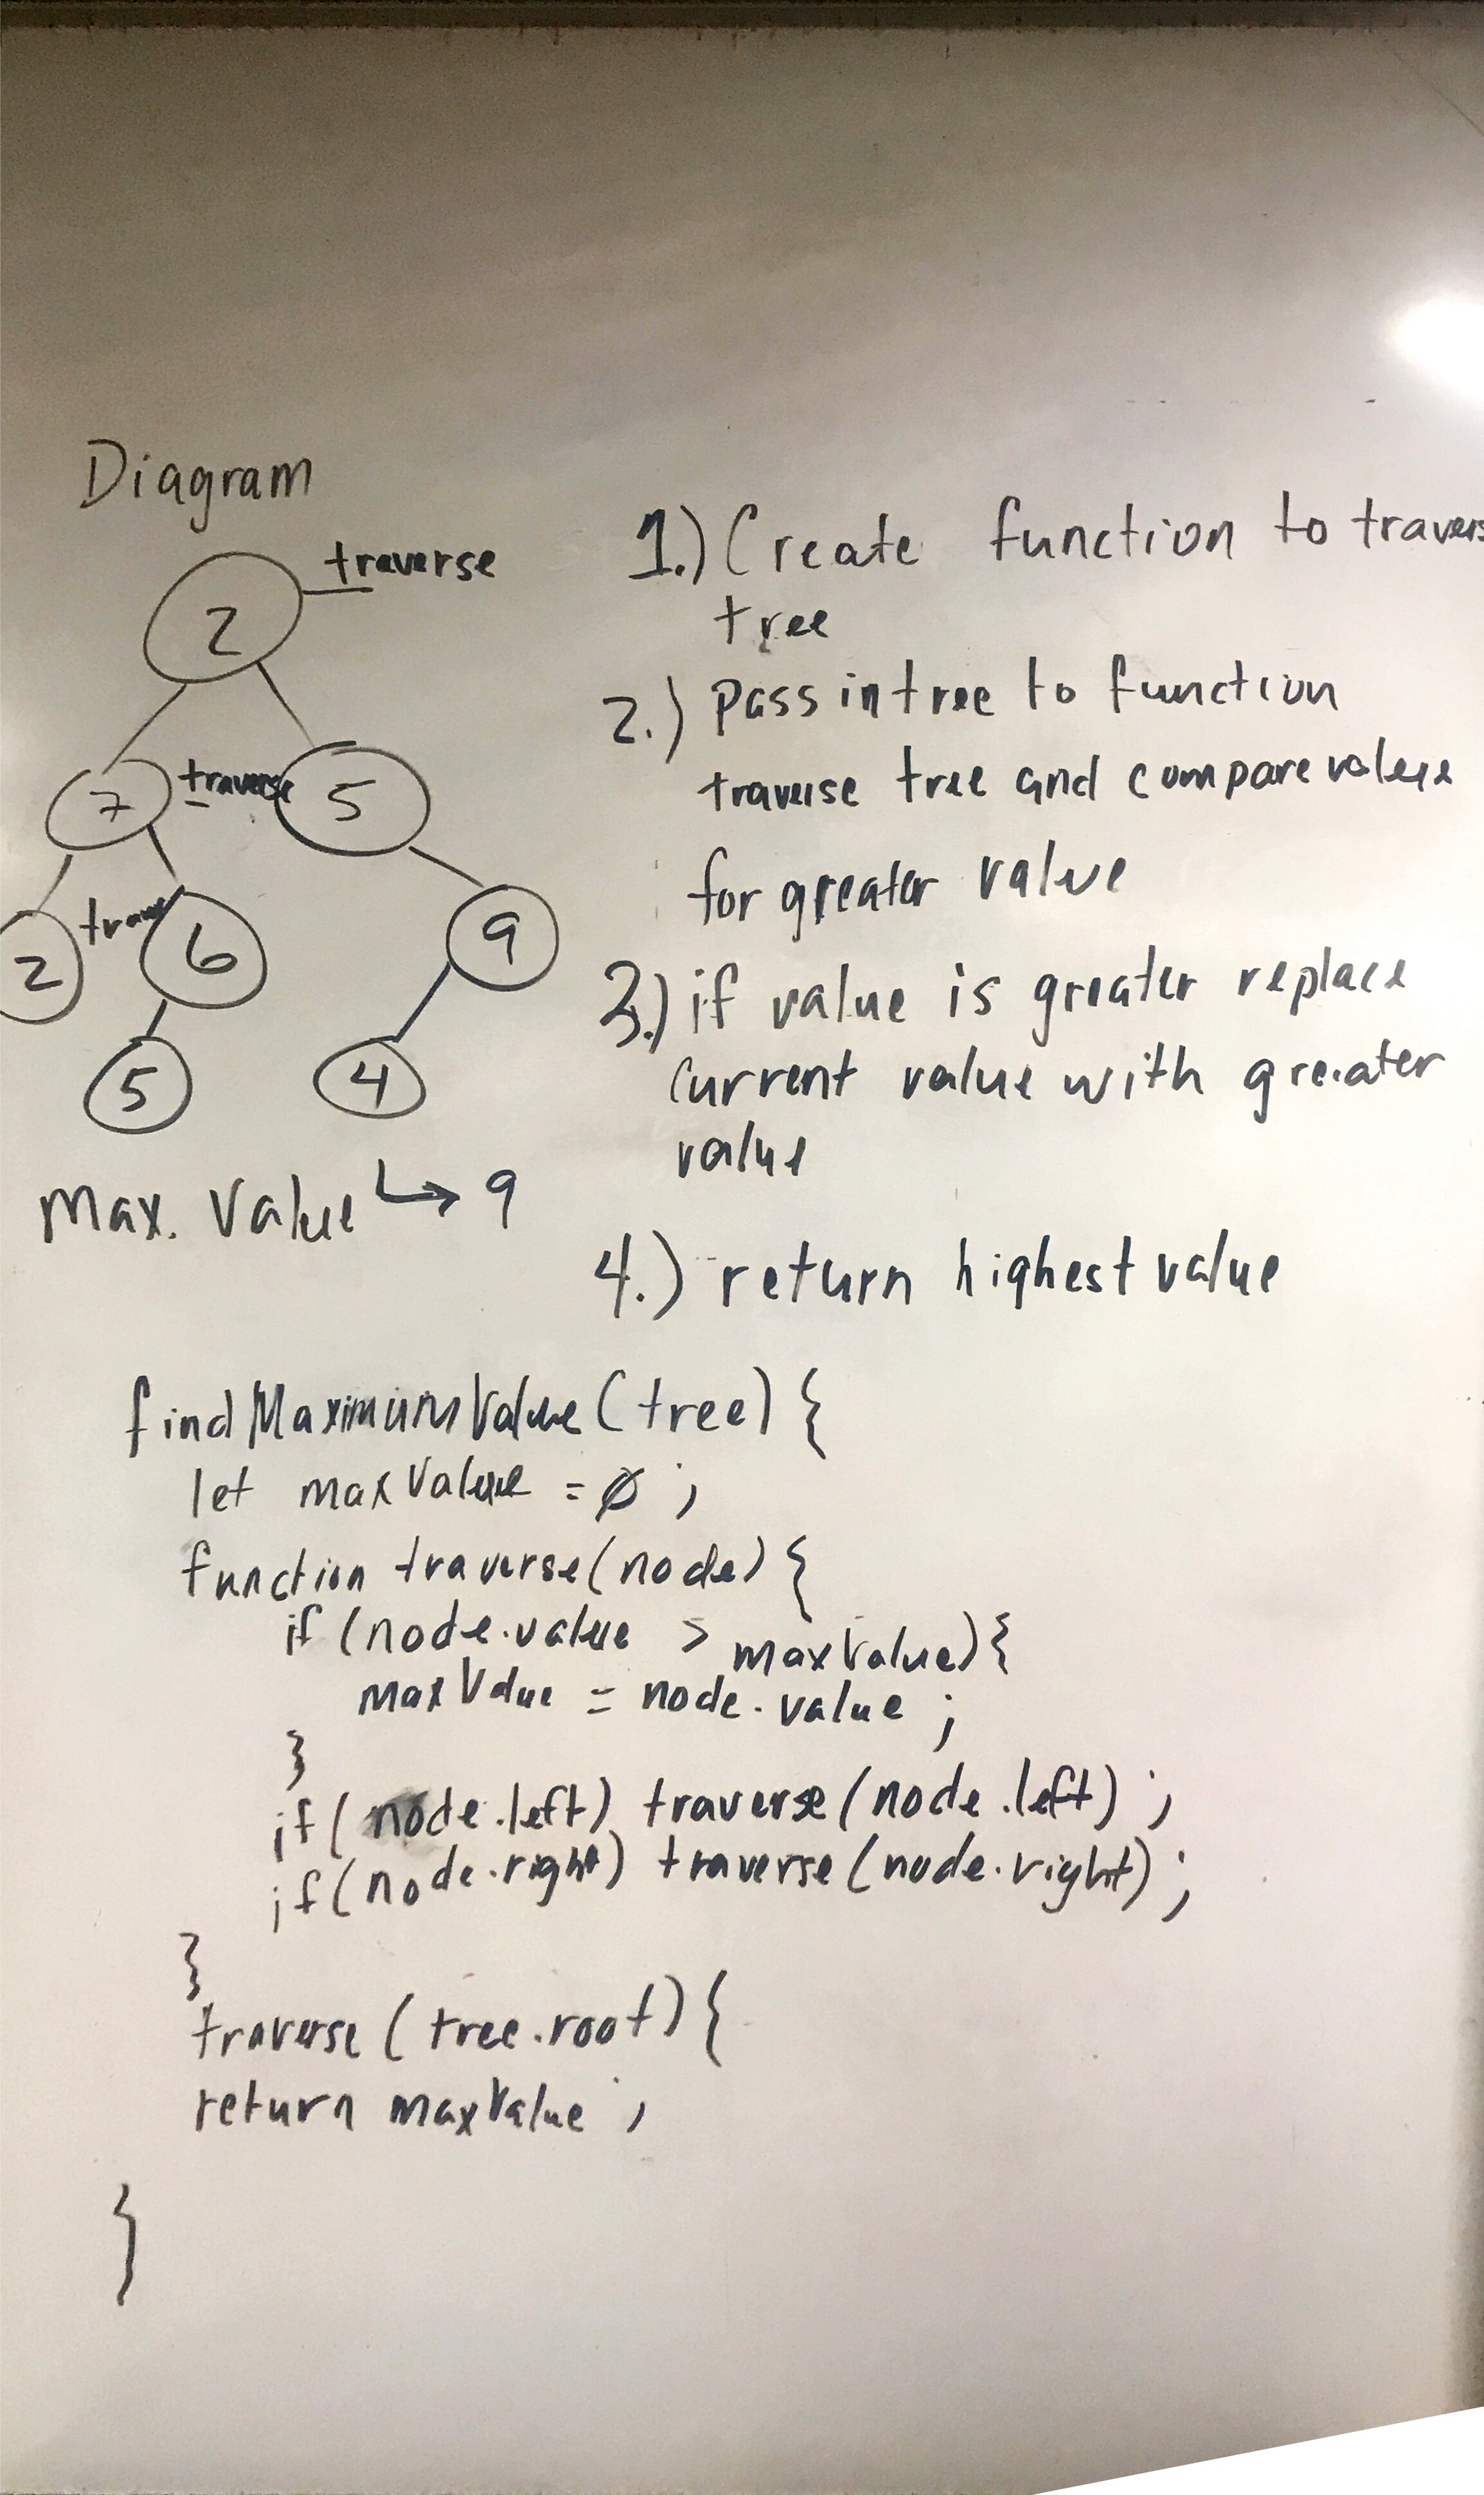 Diagram
traverse
2
7
traverse
5
2
6
9
5
4
Max. Value ↳ 9
1.) Create function to travers
tree
2.) Pass in tree to function
traverse tree and compare values
for greater value
3.) if value is greater replace
current value with greater
value
4.) return highest value
findMaximumValue(tree) {
let maxValue = Ø ;
function traverse(node) {
if (node.value > maxValue) {
maxValue = node.value ;
}
if (node.left) traverse(node.left) ;
if (node.right) traverse(node.right) ;
}
traverse(tree.root) {
return maxValue ;
}